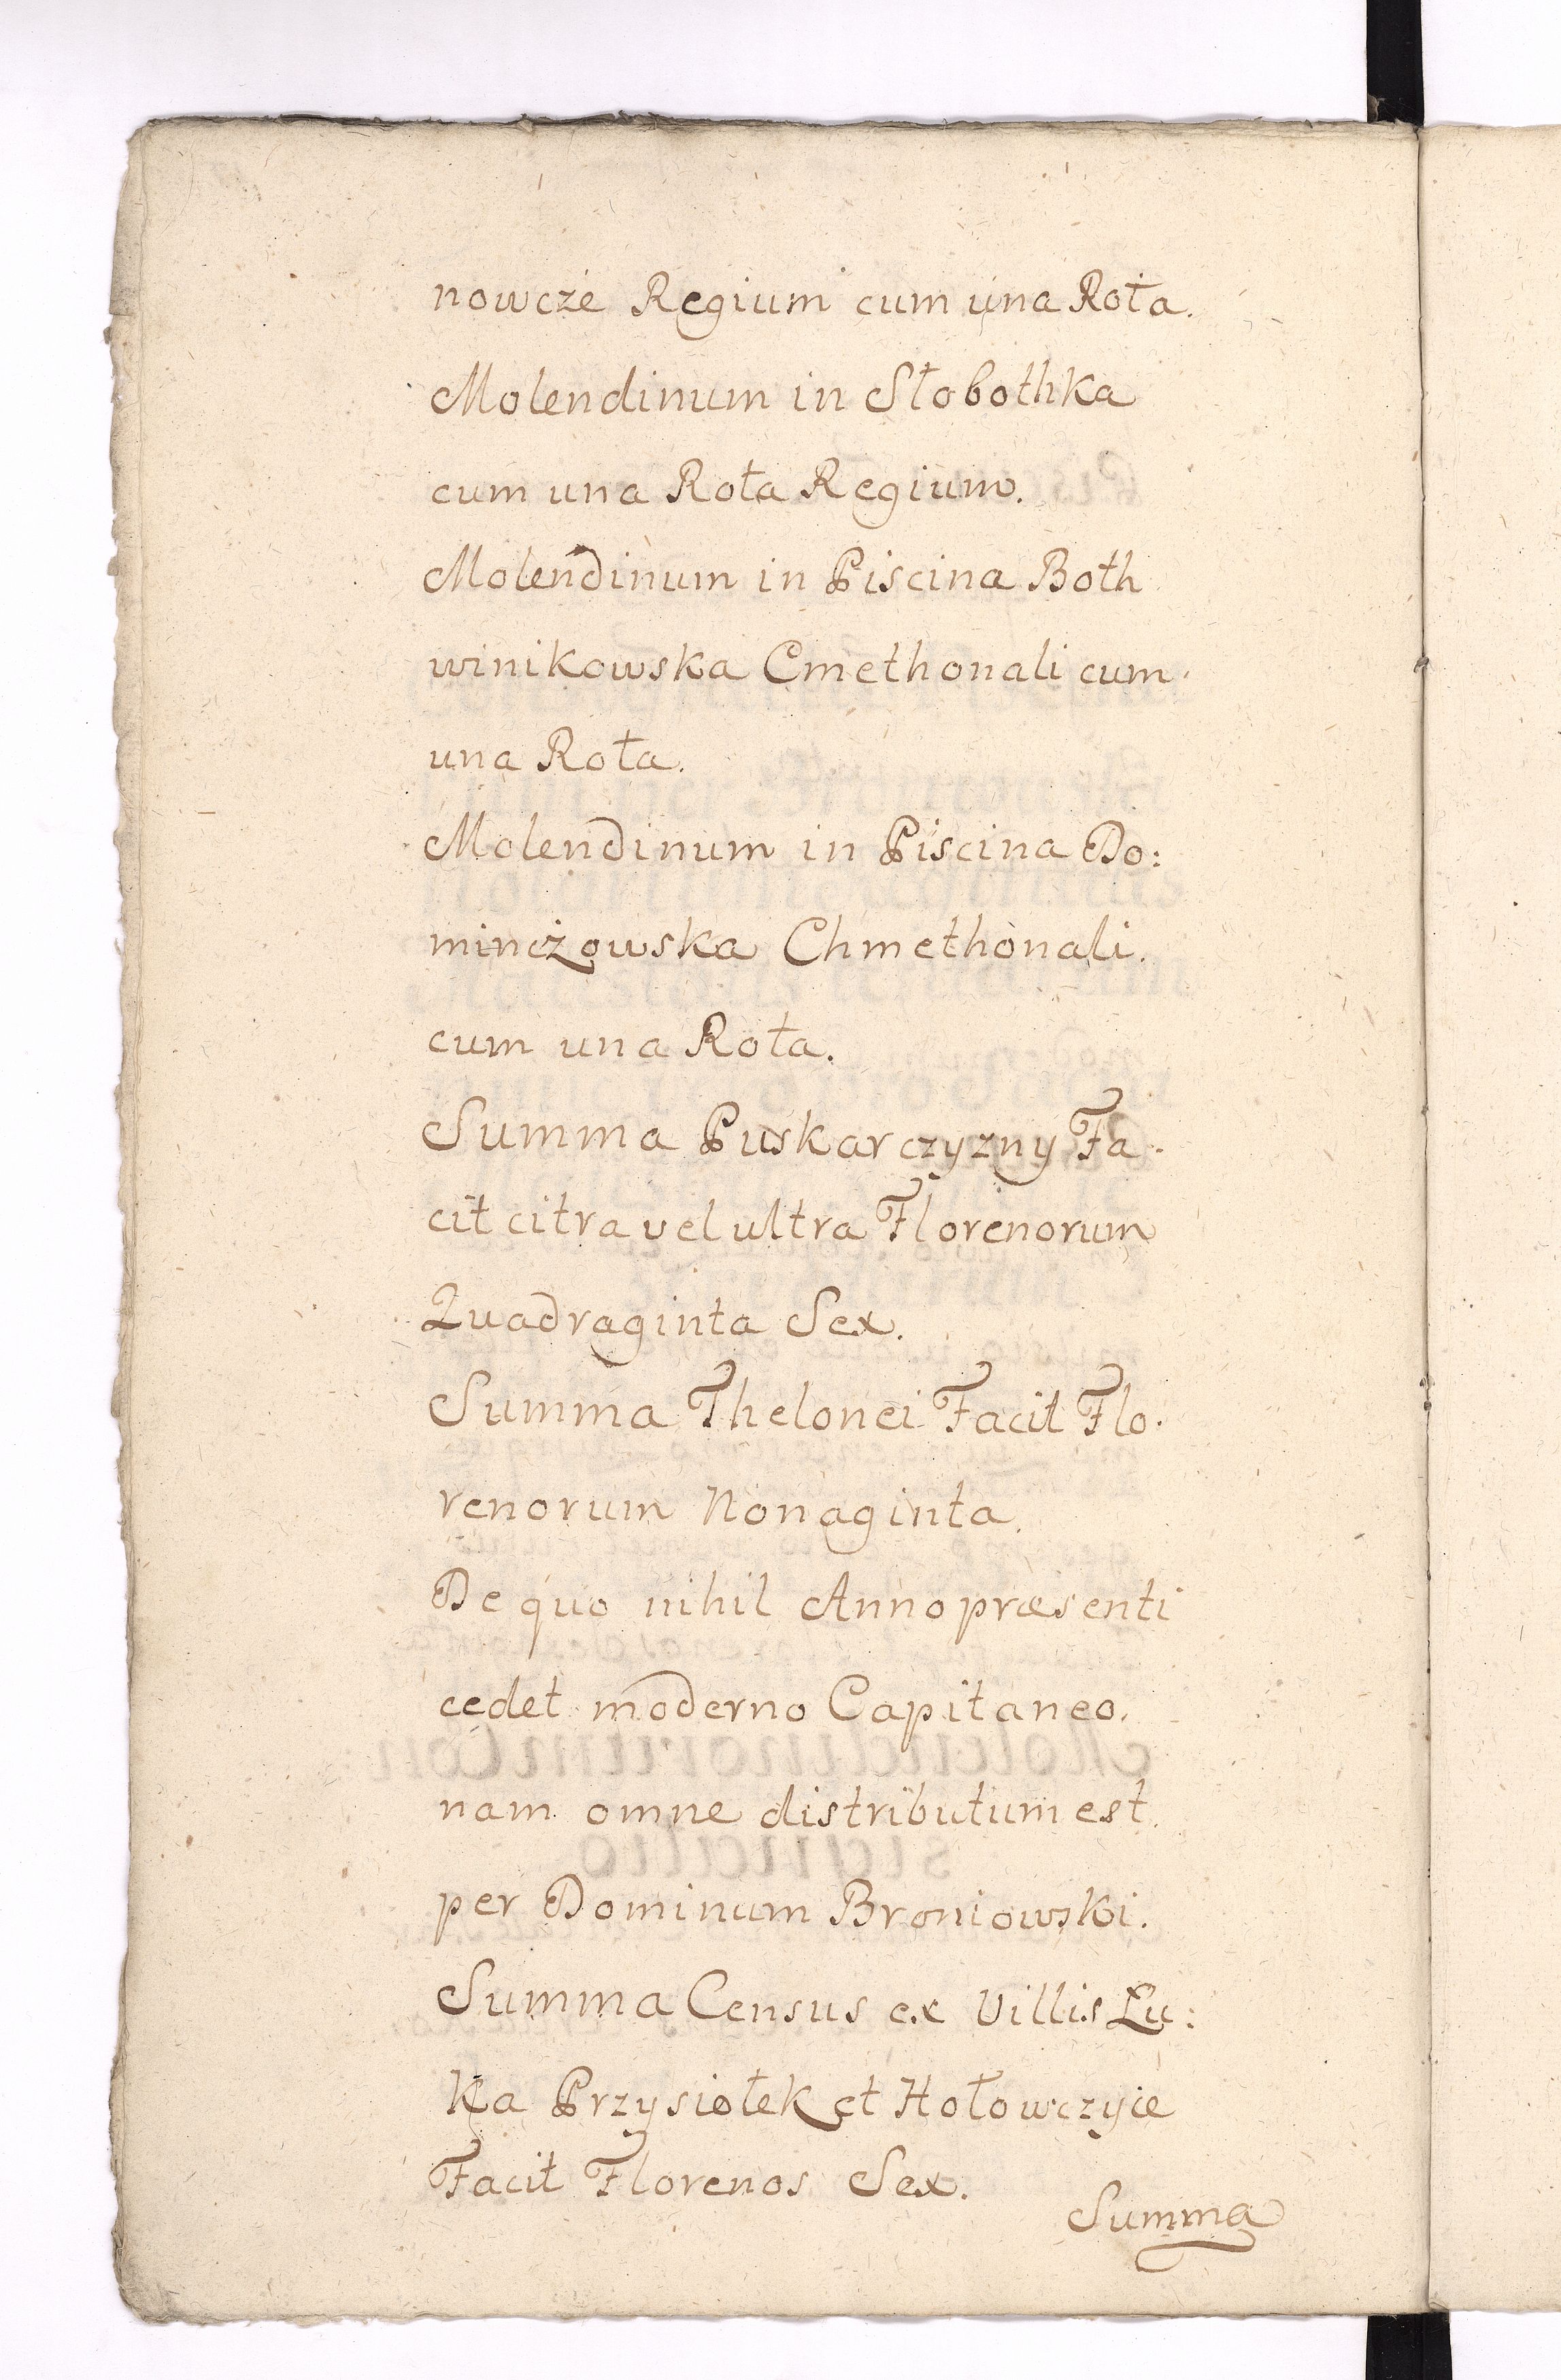 nowcze Regium cum una Rota.
Molendinum in Słobothka
cum una Rota Regium.
Molendinum in Piscina Both
winikowska Cmethonali cum
una Rota.
Molendinum in Piscina Do:
minczowska Chmethonali.
cum una Rota.
Summa Puskarczyzny Fa.
cit citra vel ultra Florenorum
Quadraginta Sex.
Summa Thelonei Facit Flo.
renorum Nonaginta.
De quo nihil Anno præsenti
cedet moderno Capitaneo.
nam omne distributum est.
per Dominum Broniowski.
Summa Census ex Villis Łu:
ka Przysiołek et Hołowczyce
Facit Florenos Sex.
Summa